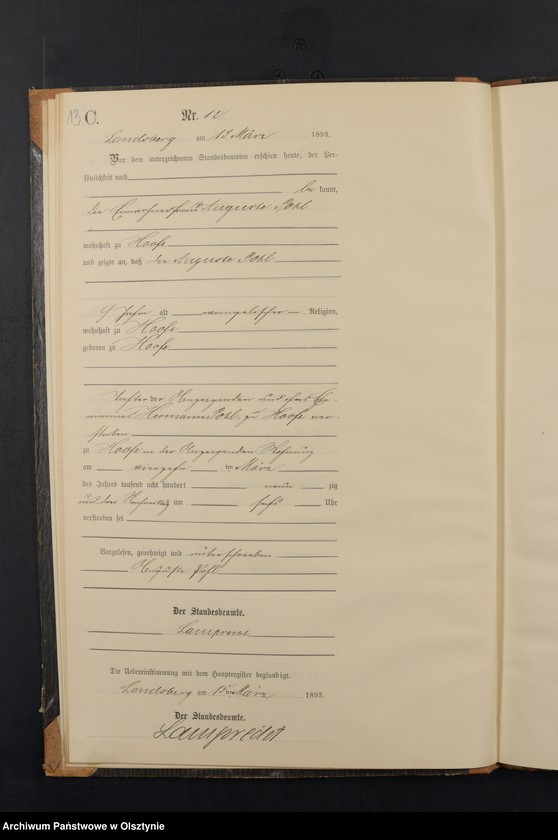 13 C.
Nr. 12
Landsberg am 15 März 1893.
Vor dem unterzeichneten Standesbeamten erschien heute, der Per-
sönlichkeit nach
be kannt,
die Einwohnerfrau Auguste Pohl
wohnhaft zu Hoofe
und zeigte an, daß die Auguste Pohl
9 Jahr alt evangelischer Religion,
wohnhaft zu Hoofe
geboren zu Hoofe
Tochter der Anzeigenden und ihres Ehe-
mannes Hermann Pohl, zu Hoofe ver-
storben
zu Hoofe in der Anzeigenden Wohnung
am vierzehn ten März
des Jahres tausend acht hundert neun zig
und drei Nachmittag um sechs Uhr
verstorben sei
Vorgelesen, genehmigt und unterschrieben
Auguste Pohl
Der Standesbeamte.
Lamprecht
Die Uebereinstimmung mit dem Hauptregister beglaubigt.
Landsberg am 15 März 1893.
Der Standesbeamte.
Lamprecht
Archiwum Państwowe w Olsztynie